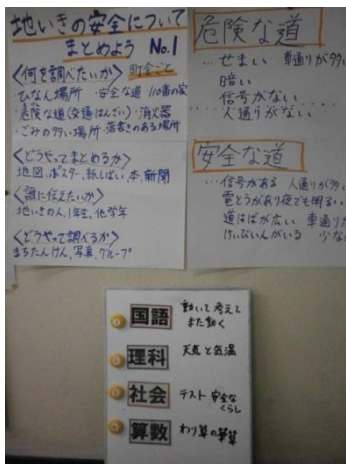 地いきの安全について
まとめよう No.1
<何を調べたいか> 町会ごと
・ひなん場所 ・安全な道 ・110番の家
・危険な道(交通・はんざい)・消火器
・ごみの多い場所 ・落書きのある場所
<どうやってまとめるか>
地図、ポスター、紙しばい、本、新聞
<誰に伝えたいか>
地いきの人、1年生、他学年
<どうやって調べるか>
まちたんけん、写真、グループ
危険な道
…せまい 車通りが多
暗い
信号がない
人通りがない
安全な道
…信号がある 人通りが多い
電とうがあり夜でも明るい
道はばが広い 車通りが
けいびいんがいる 少な
国語 動いて考えて
また動く
理科 天気と気温
社会 テスト 安全な
くらし
算数 わり算の筆算